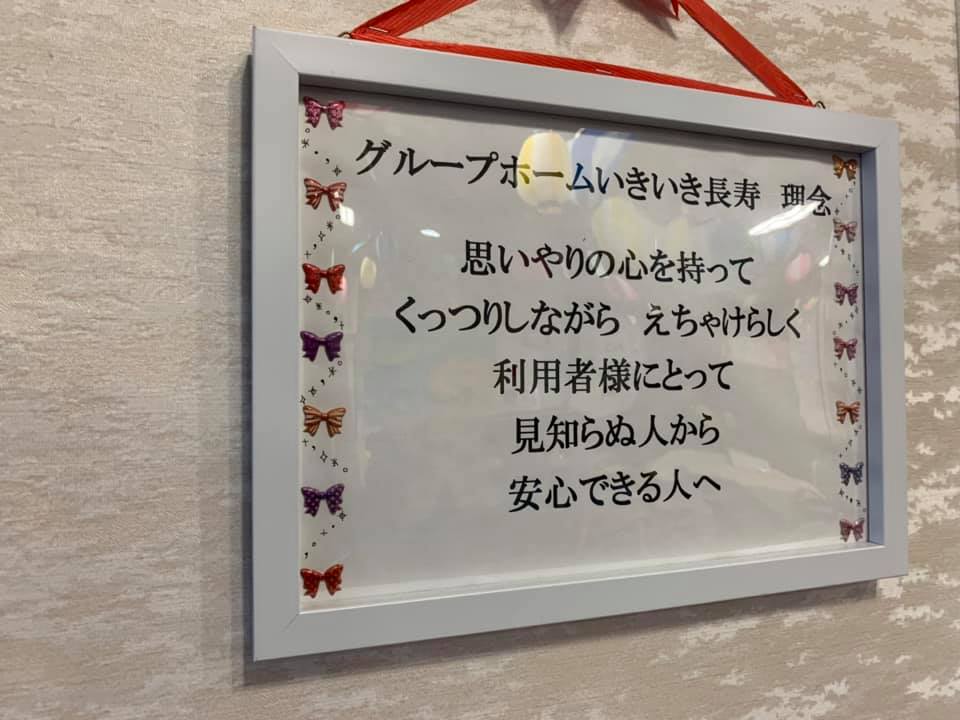 グループホームいきいき長寿　理念
思いやりの心を持って
くっつりしながら　えちゃけらしく
利用者様にとって
見知らぬ人から
安心できる人へ